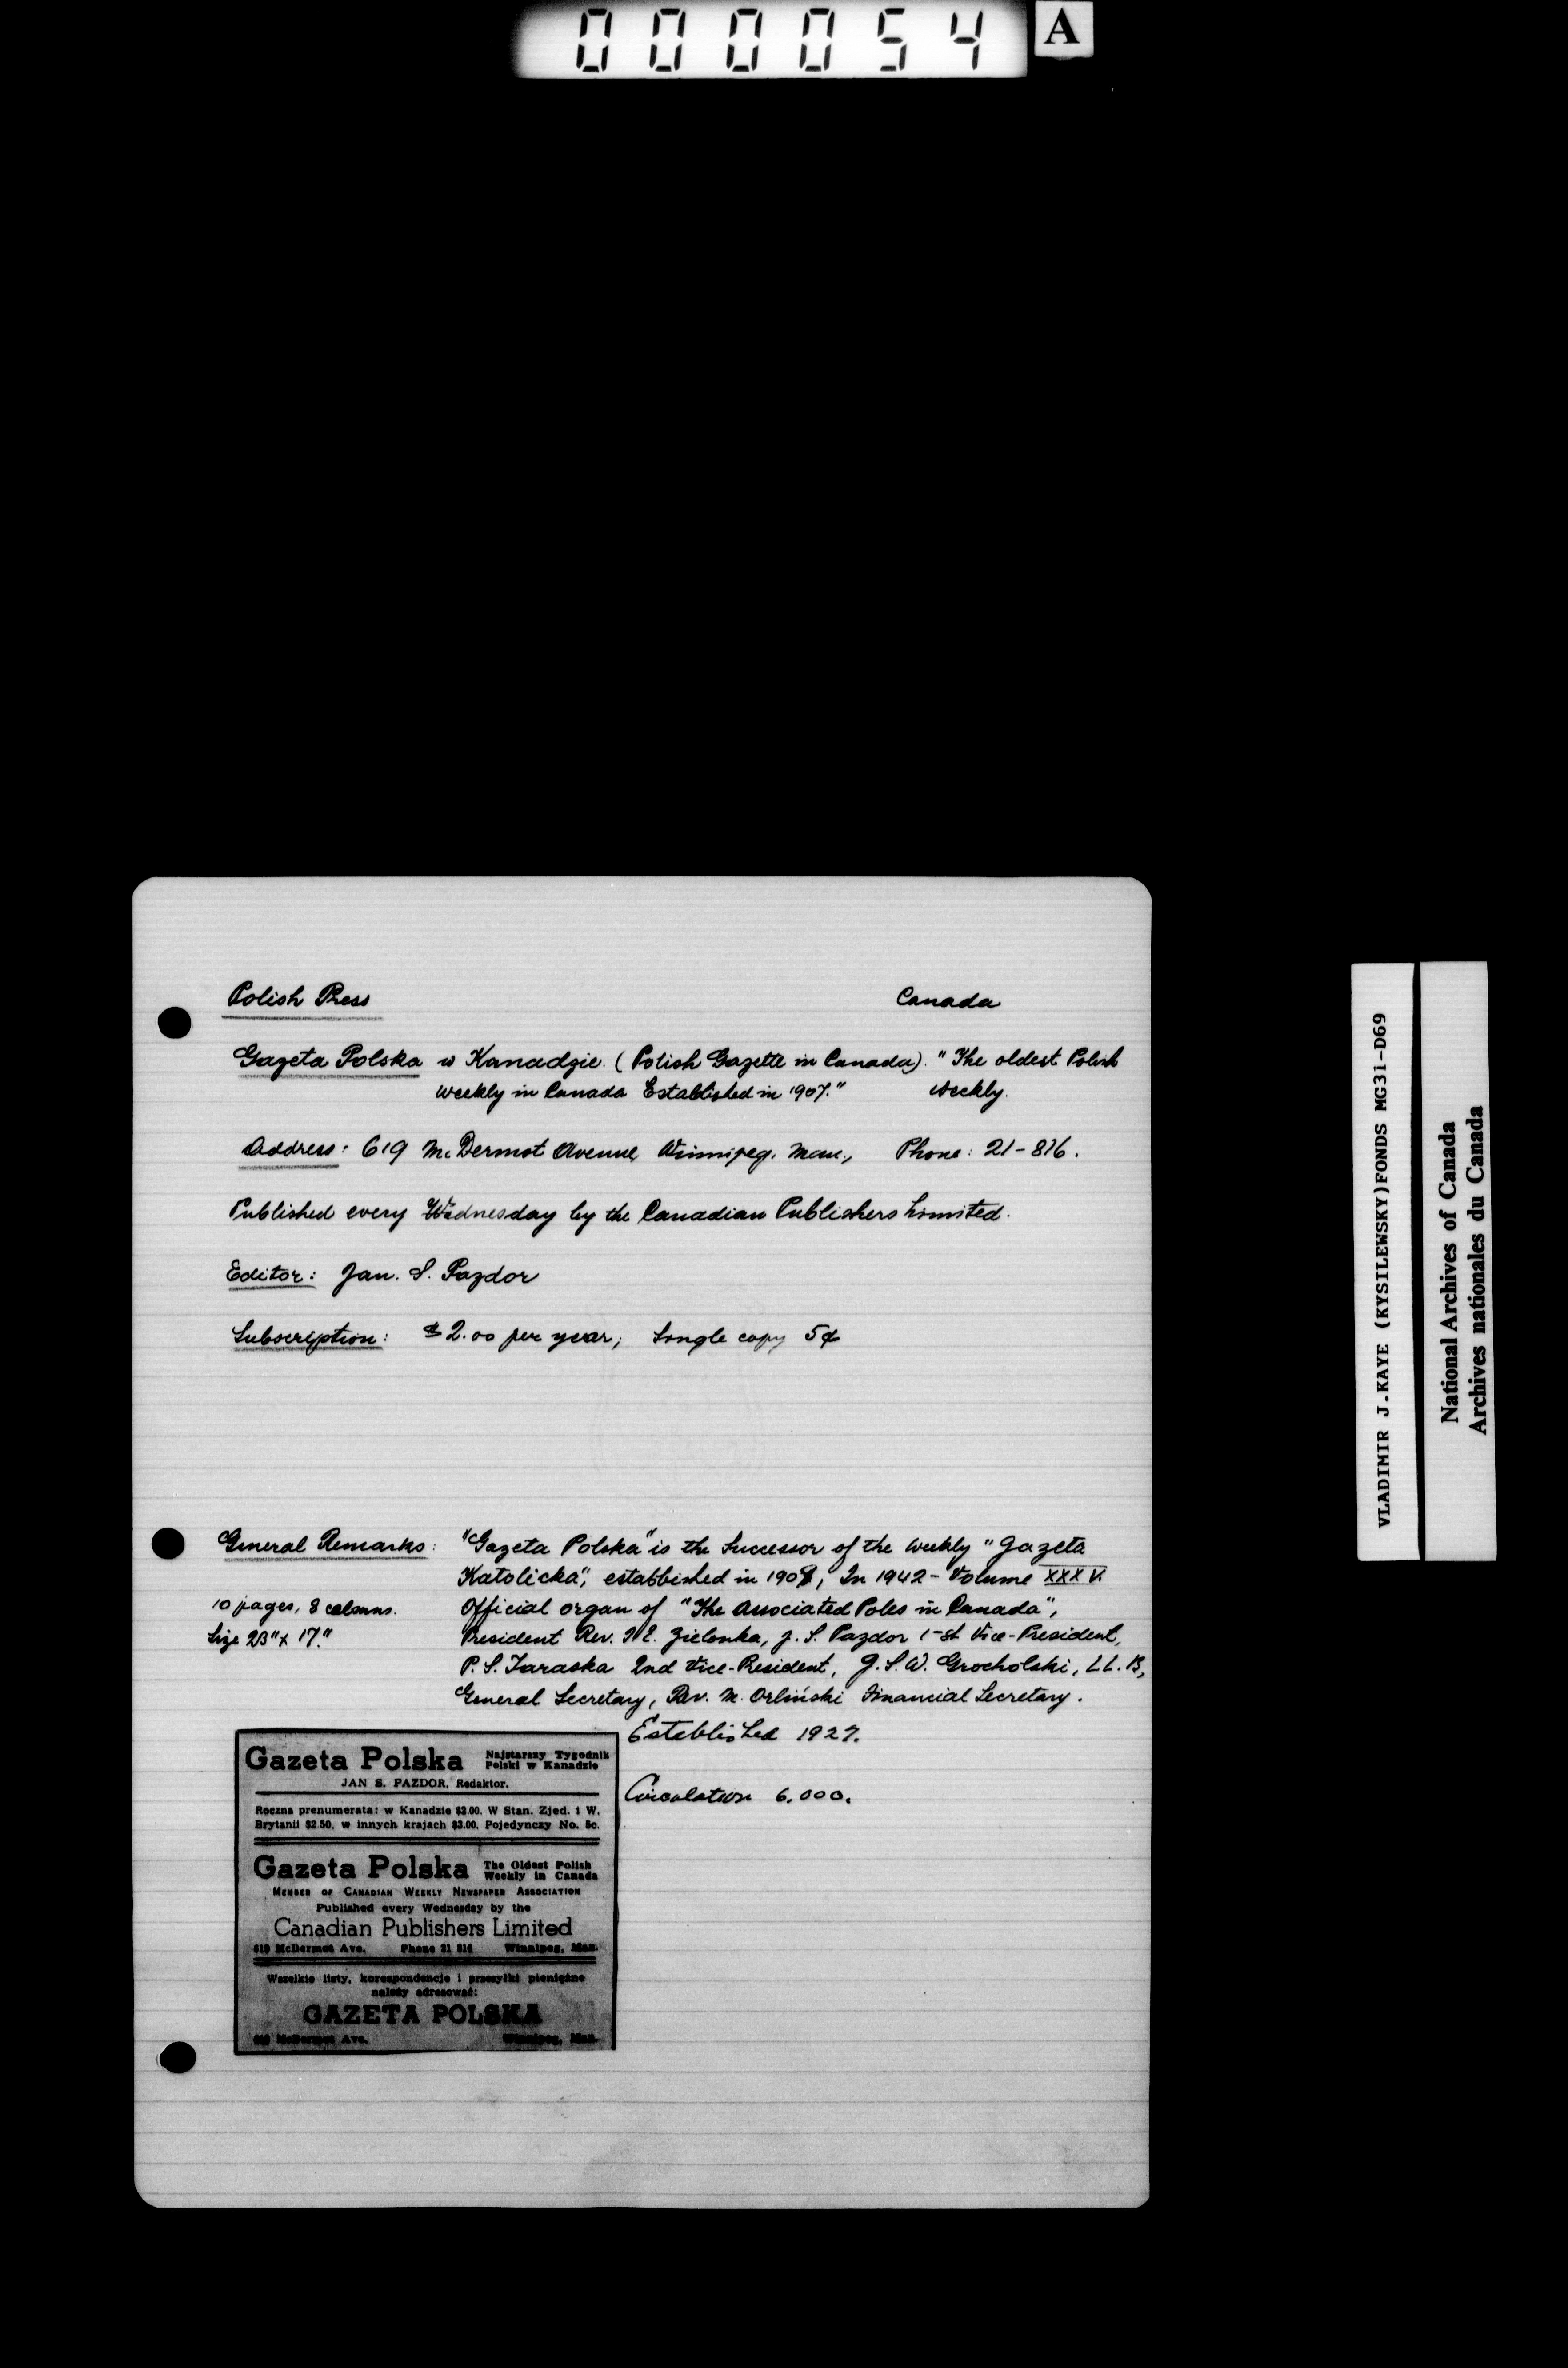 000054 A
Polish Press Canada
Gazeta Polska w Kanadzie. (Polish Gazette in Canada). "The oldest Polish
weekly in Canada Established in 1907." weekly.
Address: 619 McDermot Avenue, Winnipeg, Man., Phone: 21-816.
Published every Wednesday by the Canadian Publishers Limited.
Editor: Jan. S. Pazdor
Subscription: $2.00 per year; Single copy 5¢
General Remarks: "Gazeta Polska" is the Successor of the weekly "Gazeta
Katolicka", established in 1908, In 1942 - Volume XXXV.
10 pages, 8 columns. Official organ of "The Associated Poles in Canada",
Size 23" x 17." President Rev. Zielonka, J. S. Pazdor 1-st Vice-President,
P. S. Taraska 2nd Vice-President, J. S. W. Grocholski, LL.B,
General Secretary, Rev. M. Orliński Financial Secretary.
Established 1927.
Circulation 6.000.
Gazeta Polska Najstarszy Tygodnik
Polski w Kanadzie
JAN S. PAZDOR, Redaktor.
Roczna prenumerata: w Kanadzie $2.00. W Stan. Zjed. i W.
Brytanii $2.50, w innych krajach $3.00. Pojedynczy No. 5c.
Gazeta Polska The Oldest Polish
Weekly in Canada
MEMBER OF CANADIAN WEEKLY NEWSPAPER ASSOCIATION
Published every Wednesday by the
Canadian Publishers Limited
619 McDermot Ave. Phone 21 816 Winnipeg, Man.
Wszelkie listy, korespondencje i przesyłki pieniężne
należy adresować:
GAZETA POLSKA
619 McDermot Ave. Winnipeg, Man.
VLADIMIR J.KAYE (KYSILEWSKY)FONDS MG31-D69
National Archives of Canada
Archives nationales du Canada